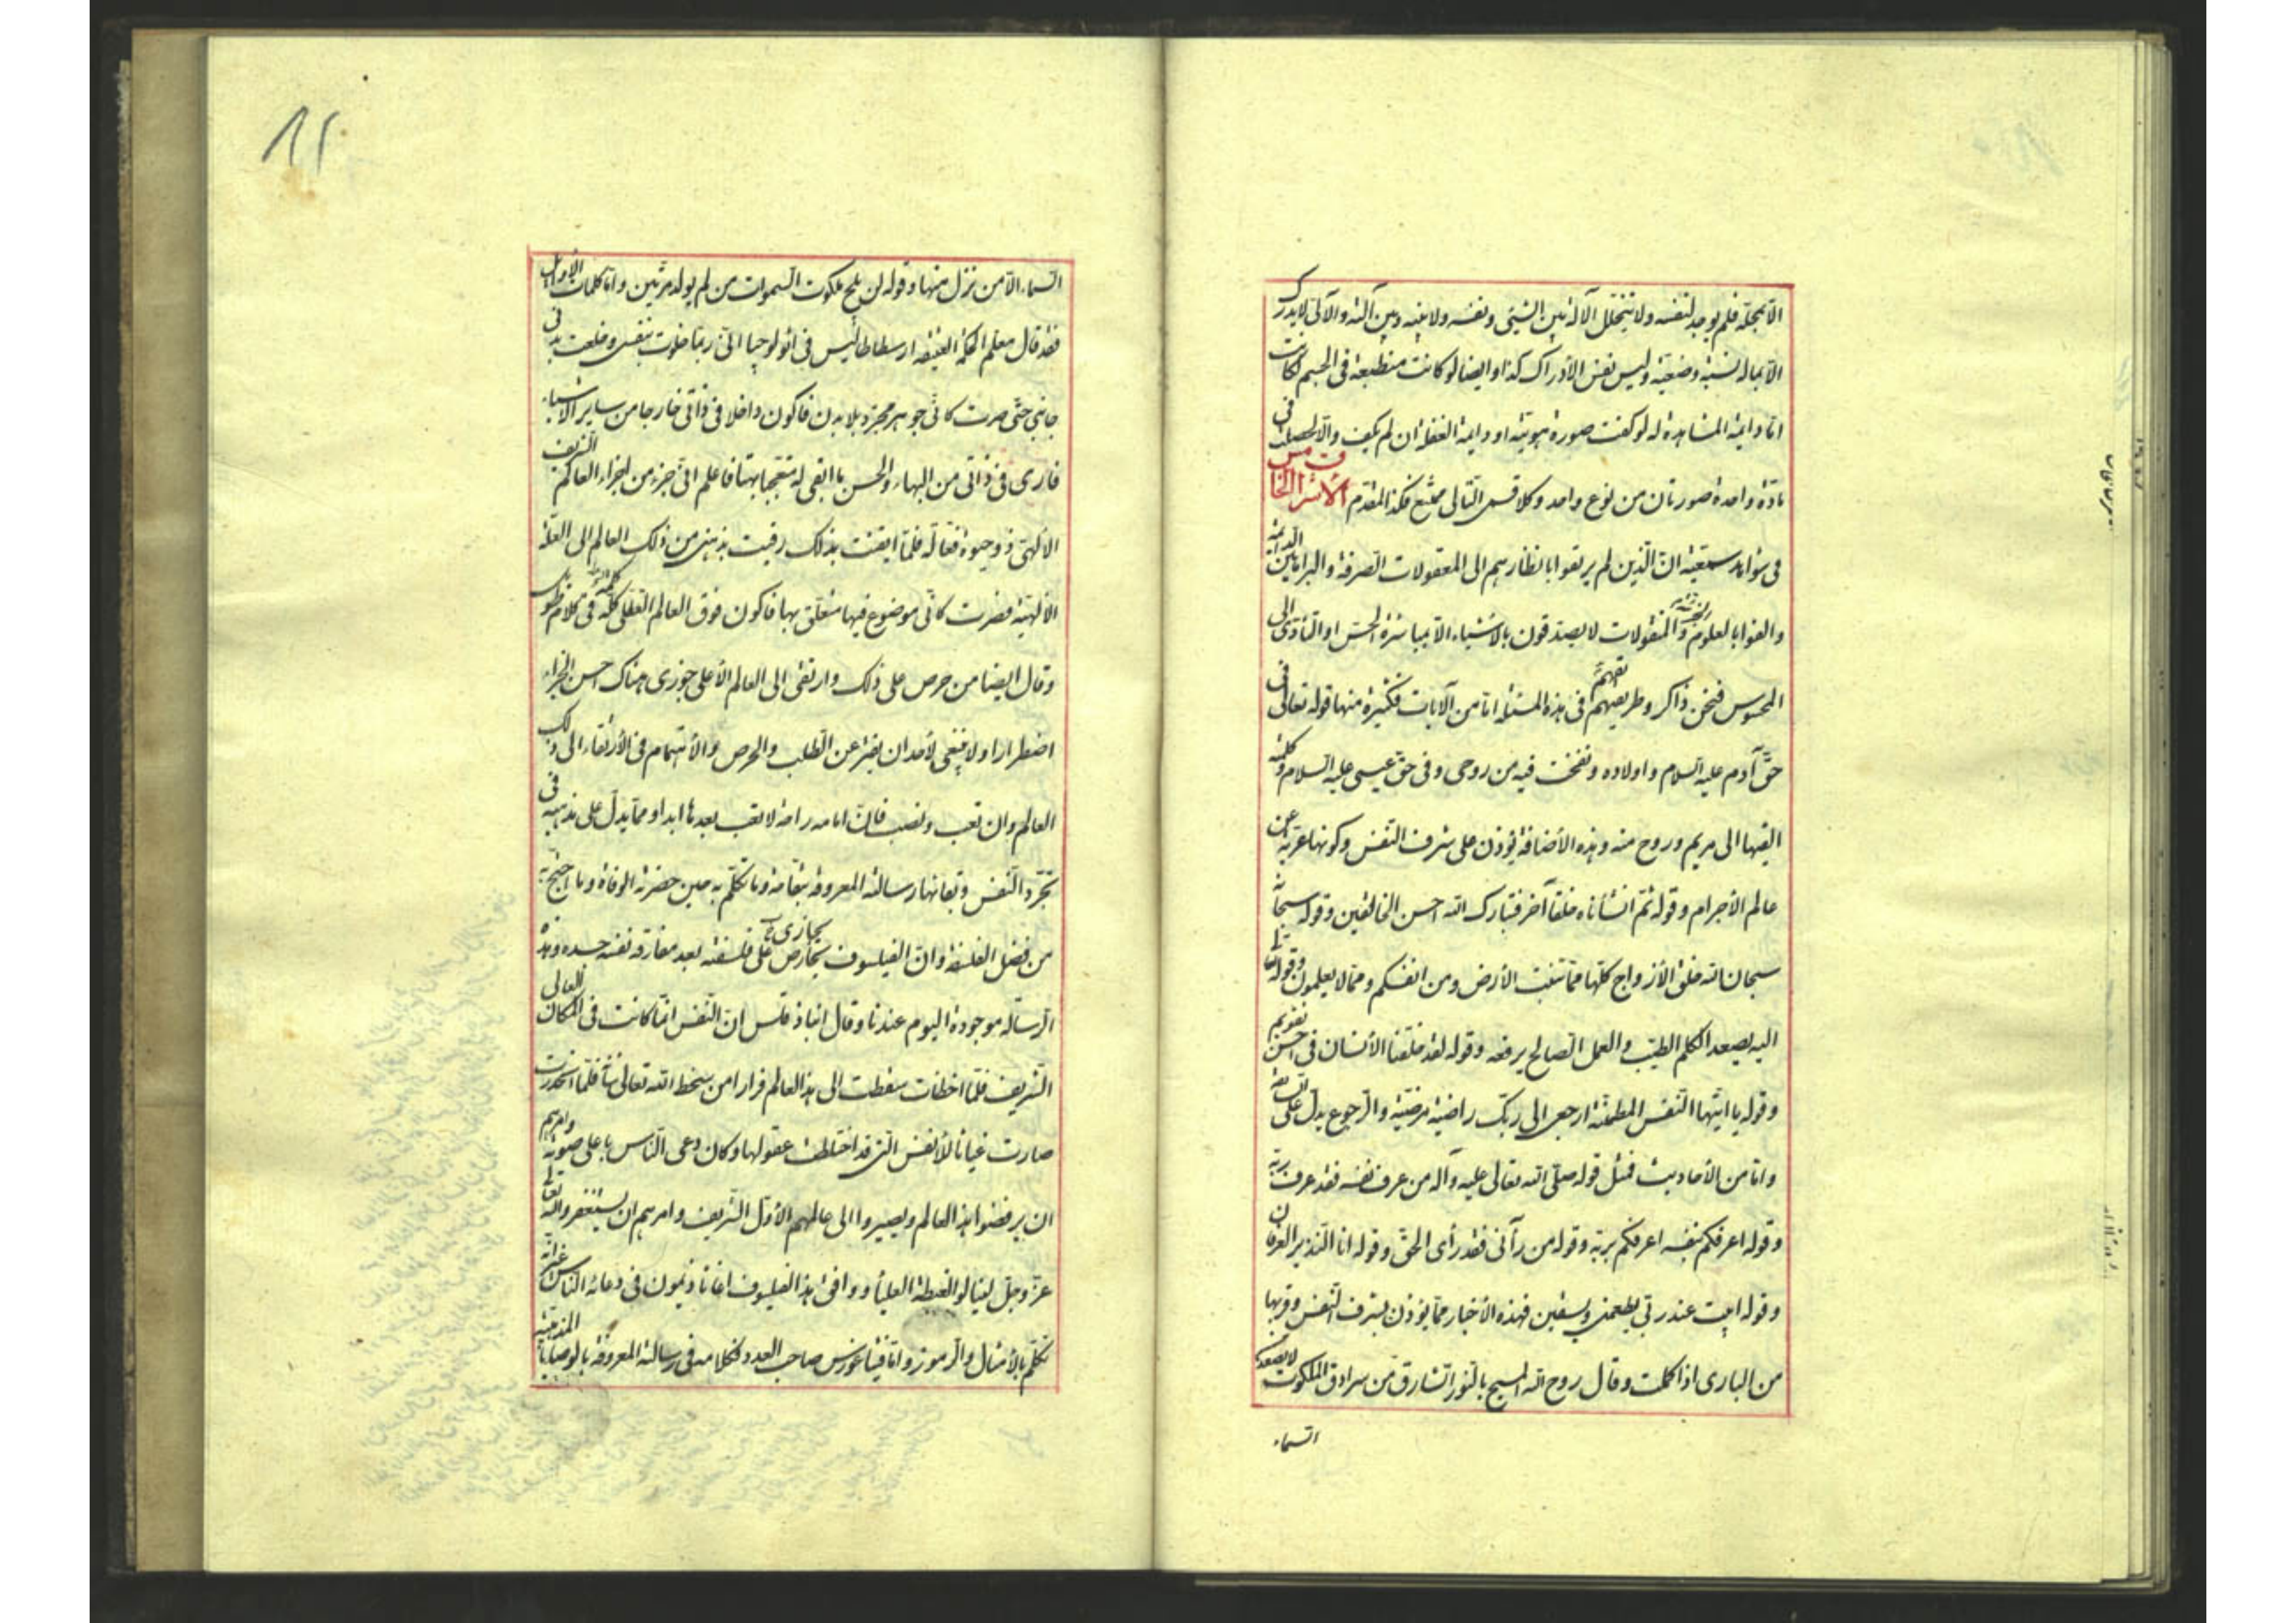 الا بمحله فلم يوجد لنفسه ولا يتخلل الآلة بين الشيئ ونفسه ولا بينه وبين آلته والآلى لا يدرك
الا بماله نسبة وضعية وليس نفس الأدراك كذا وايضا لو كانت منطبعة فى الجسم لكانت
اما دايمة المشاهدة له لو كفت صورة هويته او دايمة الغفلة ان لم يكف والا لحصلت فى
مادة واحدة صورتان من نوع واحد وكلا قسمى التالى ممتنع فكذا المقدم الأشراق الخامس
فى شواهد سمعية ان الذين لم يرتقوا بانظارهم الى المعقولات الصرفة والبراهين الدائمة
والفوا بالعلوم والمنقولات لا يصدقون بالأشياء الا بمباشرة الحس او التأدى الى
المحسوس فنحن ذاكر وطريقهم فى هذه المسئلة اما من الآيات فكثيرة منها قوله تعالى فى
حق آدم عليه السلام واولاده ونفخت فيه من روحى وفى حق عيسى عليه السلام وكلمته
القيها الى مريم وروح منه وهذه الأضافة يؤذن على شرف النفس وكونها عرية عن
عالم الأجرام وقوله ثم انشأناه خلقا آخر فتبارك الله احسن الخالقين وقوله سبحانه
سبحان الذى خلق الأزواج كلها مما تنبت الأرض ومن انفسكم ومما لا يعلمون وقوله تعالى
اليه يصعد الكلم الطيب والعمل الصالح يرفعه وقوله لقد خلقنا الأنسان فى احسن تقويم
وقوله يا ايتها النفس المطمئنة ارجعى الى ربك راضية مرضية والرجوع يدل على السابقة
واما من الأحاديث فمثل قوله صلى الله تعالى عليه وآله من عرف نفسه فقد عرف ربه
وقوله اعرفكم بنفسه اعرفكم بربه وقوله من رآنى فقد رأى الحق وقوله انا النذير العريان
وقوله ابيت عند ربى يطعمنى ويسقين فهذه الأخبار مما يؤذن بشرف النفس وقربها
من البارى اذا كملت وقال روح الله المسيح بالنور الشارق من سرادق الملكوت لا يصعد
السماء
۱۲
السماء الا من نزل منها وقوله لن يلج ملكوت السموات من لم يولد مرتين واما كلمات الأوايل
فقد قال معلم الحكمة العتيقة ارسطاطاليس فى اثولوجيا انى ربما خلوت بنفسى وخلعت بدنى
جانبى حتى صرت كانى جوهر مجرد بلا بدن فاكون داخلا فى ذاتى خارجا من ساير الأشياء
فارى فى ذاتى من البهاء والحسن ما ابقى له متعجبا بهتا فاعلم انى جزء من اجزاء العالم الشريف
الألهى ذو حيوة فعالة فلما ايقنت بذلك رقيت بذهنى من ذلك العالم الى العلة
الألهية فصرت كانى موضوع فيها متعلق بها فاكون فوق العالم العقلى كله فى كلام طويل
وقال ايضا من حرص على ذلك وارتقى الى العالم الأعلى جوزى هناك احسن الجزاء
اضطرارا ولا ينبغى لأحد ان يفتر عن الطلب والحرص والأهتمام فى الأرتقاء الى ذلك
العالم وان تعب ونصب فان امامه راحة لا تعب بعدها ابدا ومما يدل على مذهبه فى
تجرد النفس وبقائها رسالته المعروفة بتفاحة وما تكلم به حين حضرته الوفاة وما احتج به
من فضل الفلسفة وان الفيلسوف يجازى على فلسفته بعد مفارقة نفسه جسده وهذه
الرسالة موجودة اليوم عندنا وقال انباذقلس ان النفس انما كانت فى المكان العالى
الشريف فلما اخطات سقطت الى هذا العالم فرارا من سخط الله تعالى فلما انحدرت
صارت غياثا للأنفس التى قد اختلطت عقولها وكان دعى الناس باعلى صوته وامرهم
ان يرفضوا هذا العالم ويصيروا الى عالمهم الأول الشريف وامرهم ان يستغفروا الله تعالى
عز وجل لينالوا الغبطة العليا ووافق هذا الفيلسوف اغاثاذيمون فى دعائه الناس غير انه
تكلم بالأمثال والرموز واما فيثاغورس صاحب العدد فكلامه فى رسالته المعروفة بالوصايا المذهبية